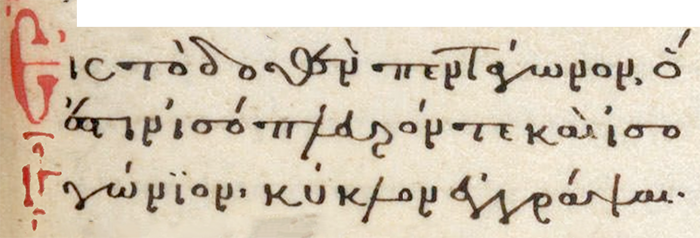 Εἰς τὸ δοθὲν πεντάγωνον, ὅ
ἐστιν ἰσόπλευρόν τε καὶ ἰσο
γώνϊον· κύκλον ἐγγράψαι·
ιγ